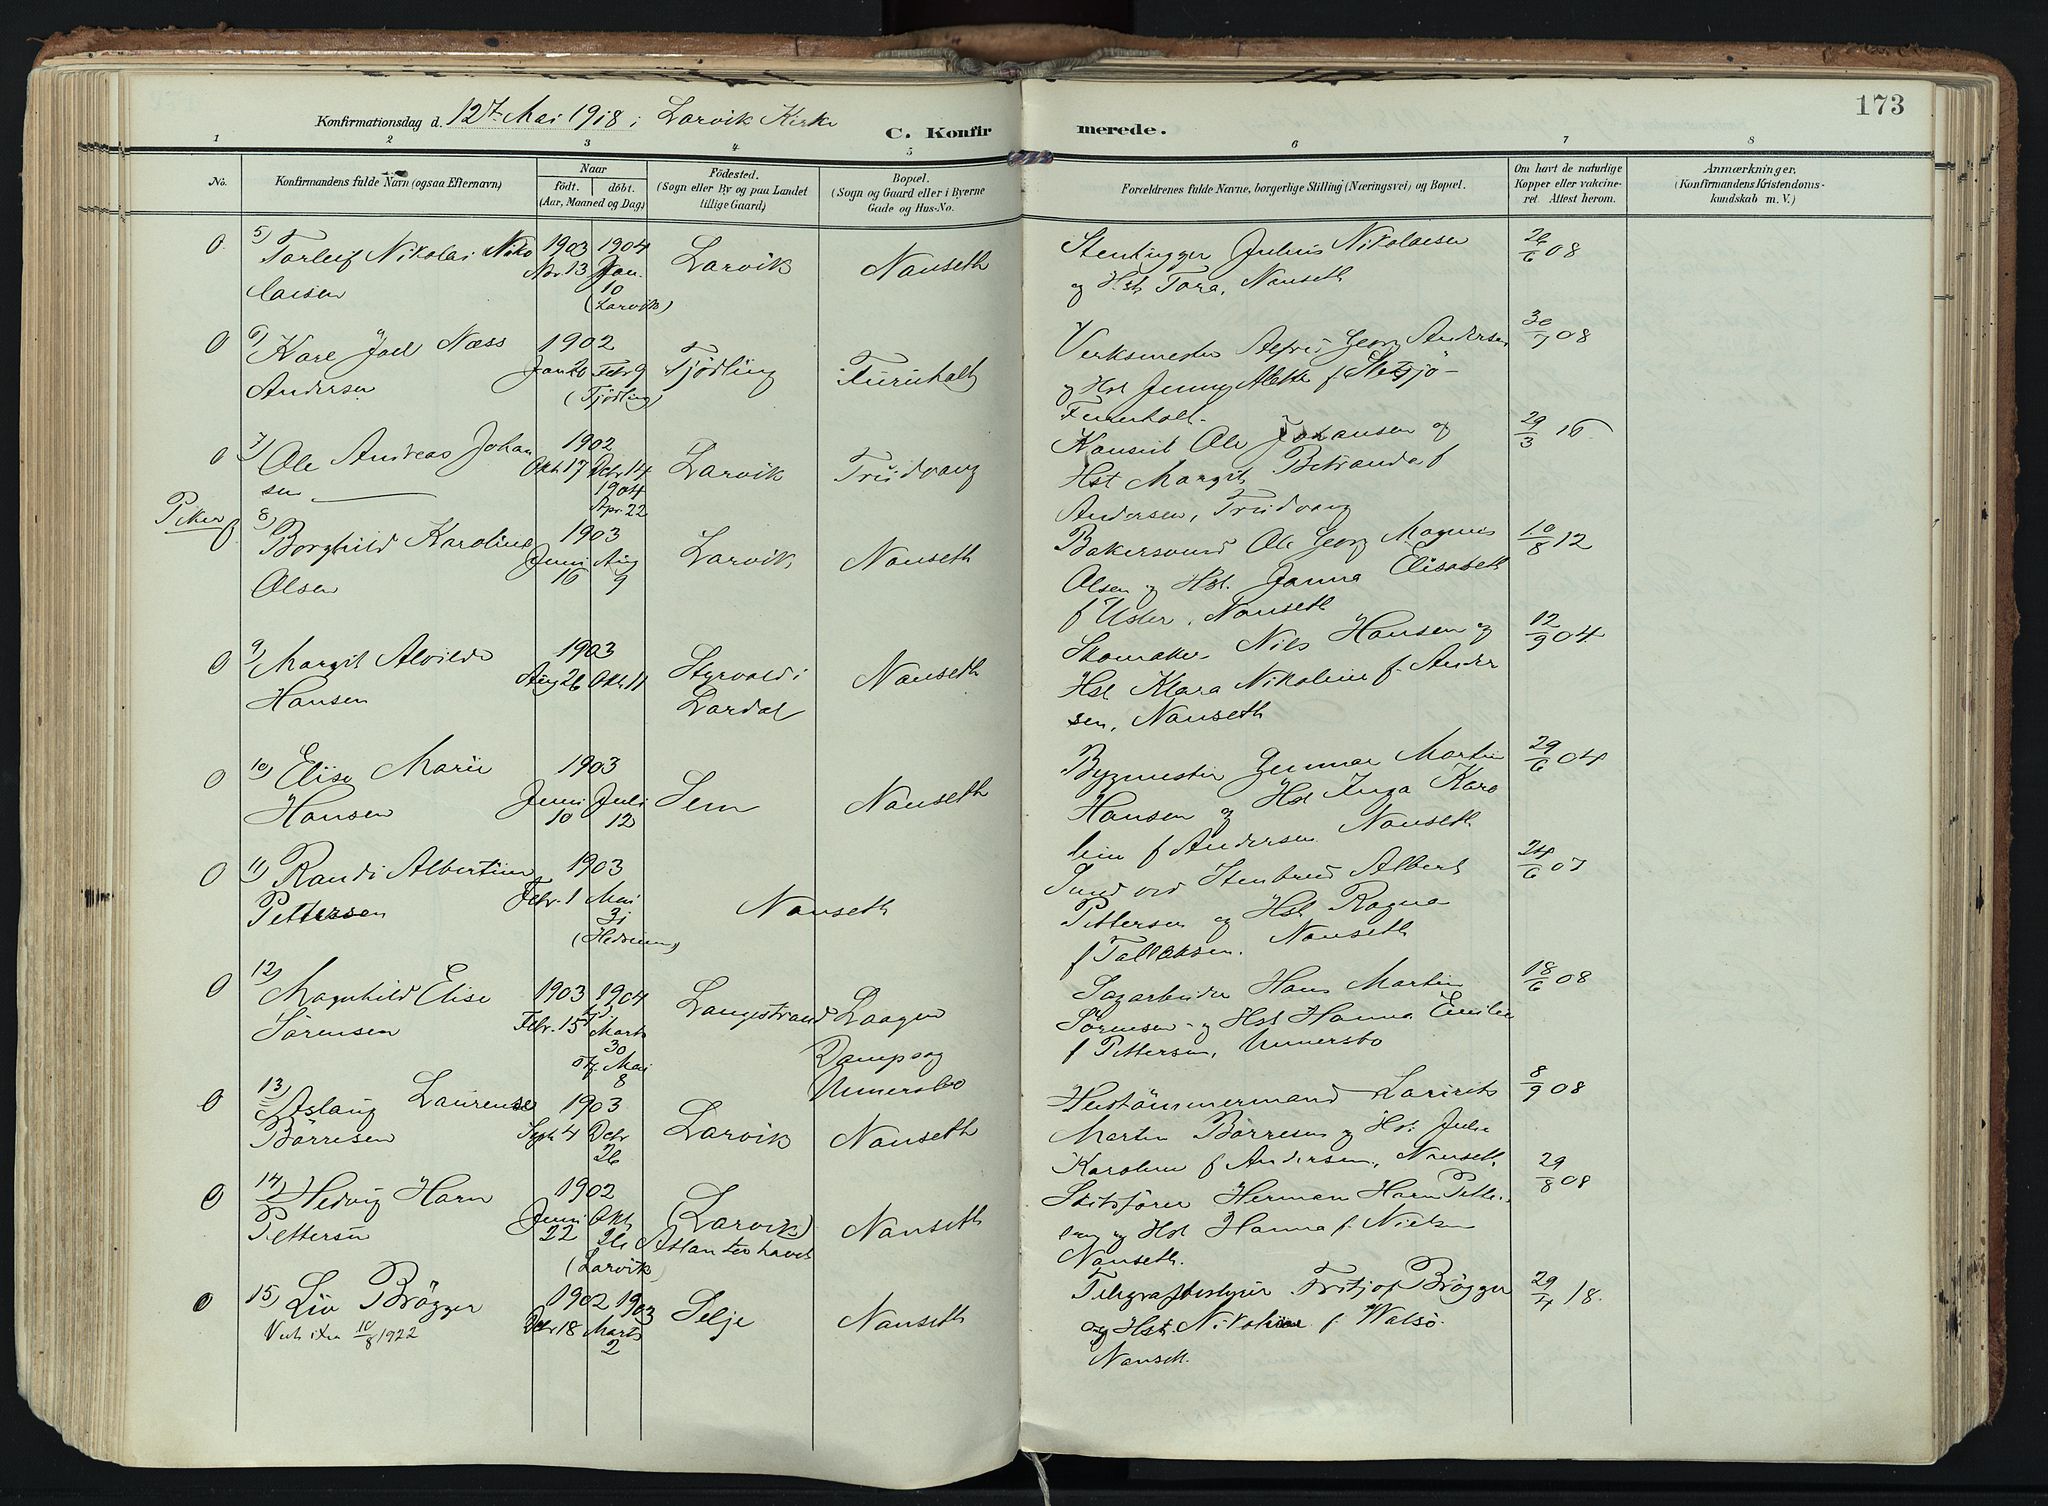 173
Konfirmationsdag d. 12te Mai 1918 i Larvik Kirke
C. Konfirmerede.
1 2 3 4 5 6 7 8
No. Konfirmandens fulde Navn (ogsaa Efternavn) Naar født. døbt. (Aar, Maaned og Dag) Fødested. (Sogn eller By og paa Landet tillige Gaard) Bopæl. (Sogn og Gaard eller i Byerne Gade og Hus-No. Forældrenes fulde Navne, borgerlige Stilling (Næringsvei) og Bopæl. Om havt de naturlige Kopper eller vakcineret. Attest herom. Anmærkninger. (Konfirmandens Kristendomskundskab m. V.)
0 5) Torleif Nikolai Niko 1903 1904 Larvik Nanseth Stenhugger Julius Nikolaisen 26/6 08
laisen Nov. 13 Jan. 10 (Larvik) og Hst Tora, Nanseth
0 6) Kare Joel Næss 1902 Tjødling Furuholt Verksmester Alfred Georg Andersen 30/7 08
Andersen Jan 20 Febr 9 (Tjødling) og Hst Jenny Alette f.
Furuholt.
0 7) Ole Andreas Johan 1902 Larvik Tridvang Ole Johansen og 29/3 16
sen Okt. 17 Debr 14 Hst Margit f
1904 Apr. 22 Andersen, Tridvang
Piker
0 8) Borghild Karoline 1903 Larvik Nanseth Bakersvend Ole Georg Magnus 10/8 12
Olsen Juni 16 Aug 9 Olsen og Hst. Janna Elisabeth
f Uster, Nanseth
0 9) Margit Alvilde 1903 Styrvold i Nanseth Skomaker Nils Hansen og 12/9 04
Hansen Aug 26 Okt 11 Lardal Hst Klara Nikoline f. Ander
sen, Nanseth
0 10) Elise Marie 1903 Sem Nanseth Bygmester Gunnar Martin 29/6 04
Hansen Juni 10 Juli 12 Hansen og Hst Inga Karo
line f Andersen Nanseth
0 11) Randi Albertine 1903 Nanseth Albert 24/6 07
Pettersen Febr. 1 Mai 31 (Hedrum) Pettersen og Hst Ragna
f Tallaksen. Nanseth
0 12) Magnhild Elise 1903 1904 Langestrand Laagen Sagarbeider Hans Martin 18/6 08
Sørensen Febr. 15 Marts 30 Dampsag Sørensen og Hst Hanna Emilie
Mai 8 Unnersbo f Pettersen, Unnersbo
0 13) Aslaug Laurense 1903 Larvik Nanseth Hustømmermand Laurits 8/9 08
Børresen Sept. 4 Debr 26 Martin Børresen og Hst Julie
Karoline f Andersen, Nanseth.
0 14) Hedvig Harn 1902 (Larvik) Nanseth Skibsfører Herman Harn Petter 29/8 08
Pettersen Juni 22 Okt 26 (Larvik) Atlanterhavet sen og Hst Hanna f. Nielsen
Nanseth.
0 15) Liv Brøgger 1902 1903 Selje Nanseth Telegrafbestyrer Fritjof Brøgger 29/4 18.
10/8 1922 Debr 18 Marts 2 og Hst. Nikoline f Walsø.
Nanseth.